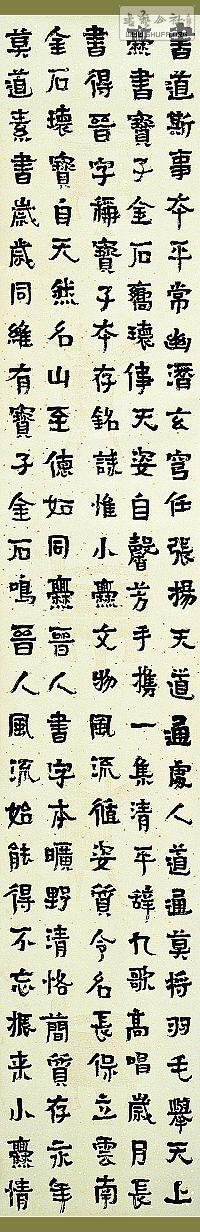 書道斯事本平常幽潛玄宮任張揚天道通處人道通莫將羽毛舉天上
爨書寶子金石奮瓌倳天姿自馨芳手攜一集清平辭九歌高唱歲月長
書得晉字稱寶子本存銘誄惟小爨文物風流循姿質令名長保立雲南
金石瓌寶自天然名山至德如同爨晉人書字本曠野清恪簡質存永年
莫道素書歲歲同維有寶子金石鳴晉人風流始能得不忘振來小爨情